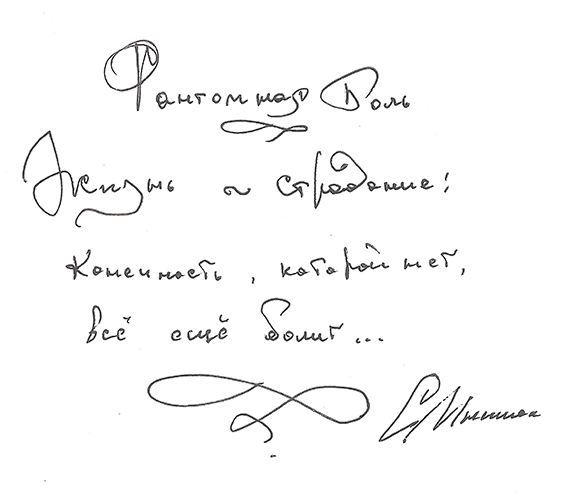 Фантомная Боль
Жизнь ~ страдание!
Конечность, которой нет,
всё ещё болит...